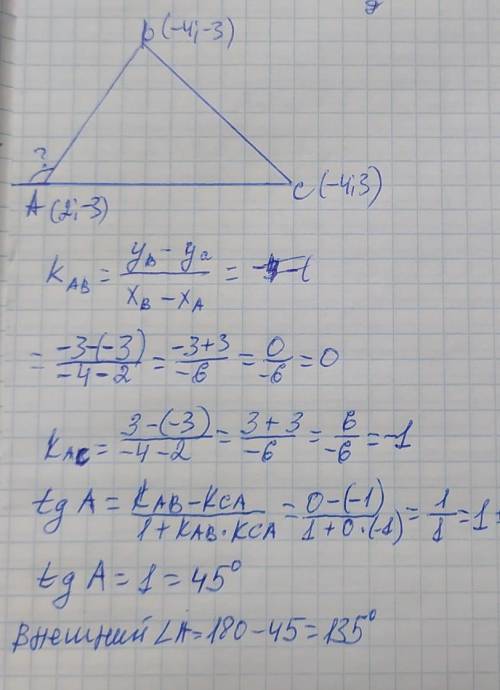 b(-4;-3)
?
A(2;-3)
C(-4;3)
K_AB = (y_B - y_a)/(x_B - x_A) =
= (-3-(-3))/(-4-2) = (-3+3)/(-6) = 0/(-6) = 0
K_AC = (3-(-3))/(-4-2) = (3+3)/(-6) = 6/(-6) = -1
tg A = (K_AB - K_CA)/(1+K_AB·K_CA) = (0-(-1))/(1+0·(-1)) = 1/1 = 1
tg A = 1 = 45°
Внешний ∠A = 180 - 45 = 135°